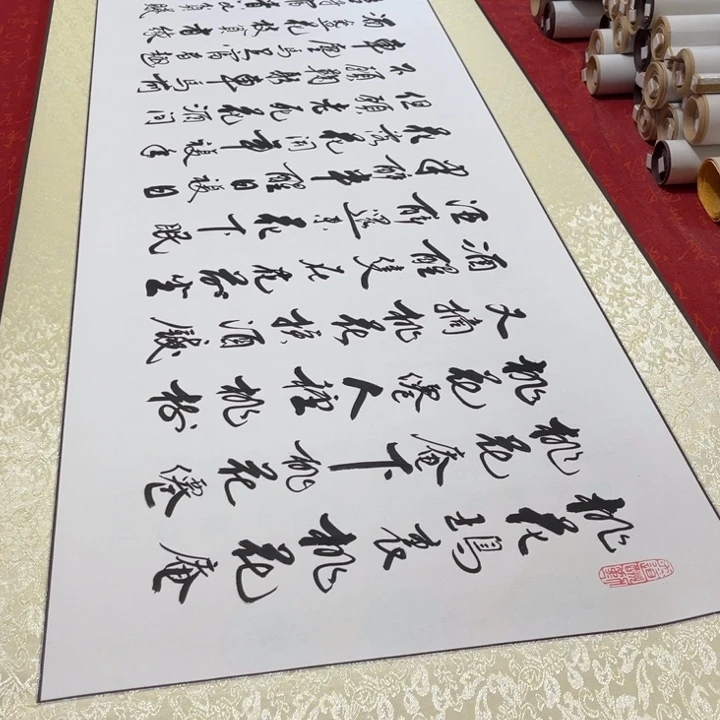 桃花塢裏桃花庵
桃花庵下桃花僊
桃花僊人種桃樹
又摘桃花換酒錢
酒醒隻在花前坐
酒醉還須花下眠
半醉半醒日復日
花落花開年復年
但願老死花酒間
不願鞠躬車馬前
車塵馬足富者趣
酒盞花枝貧者緣
比貧賤